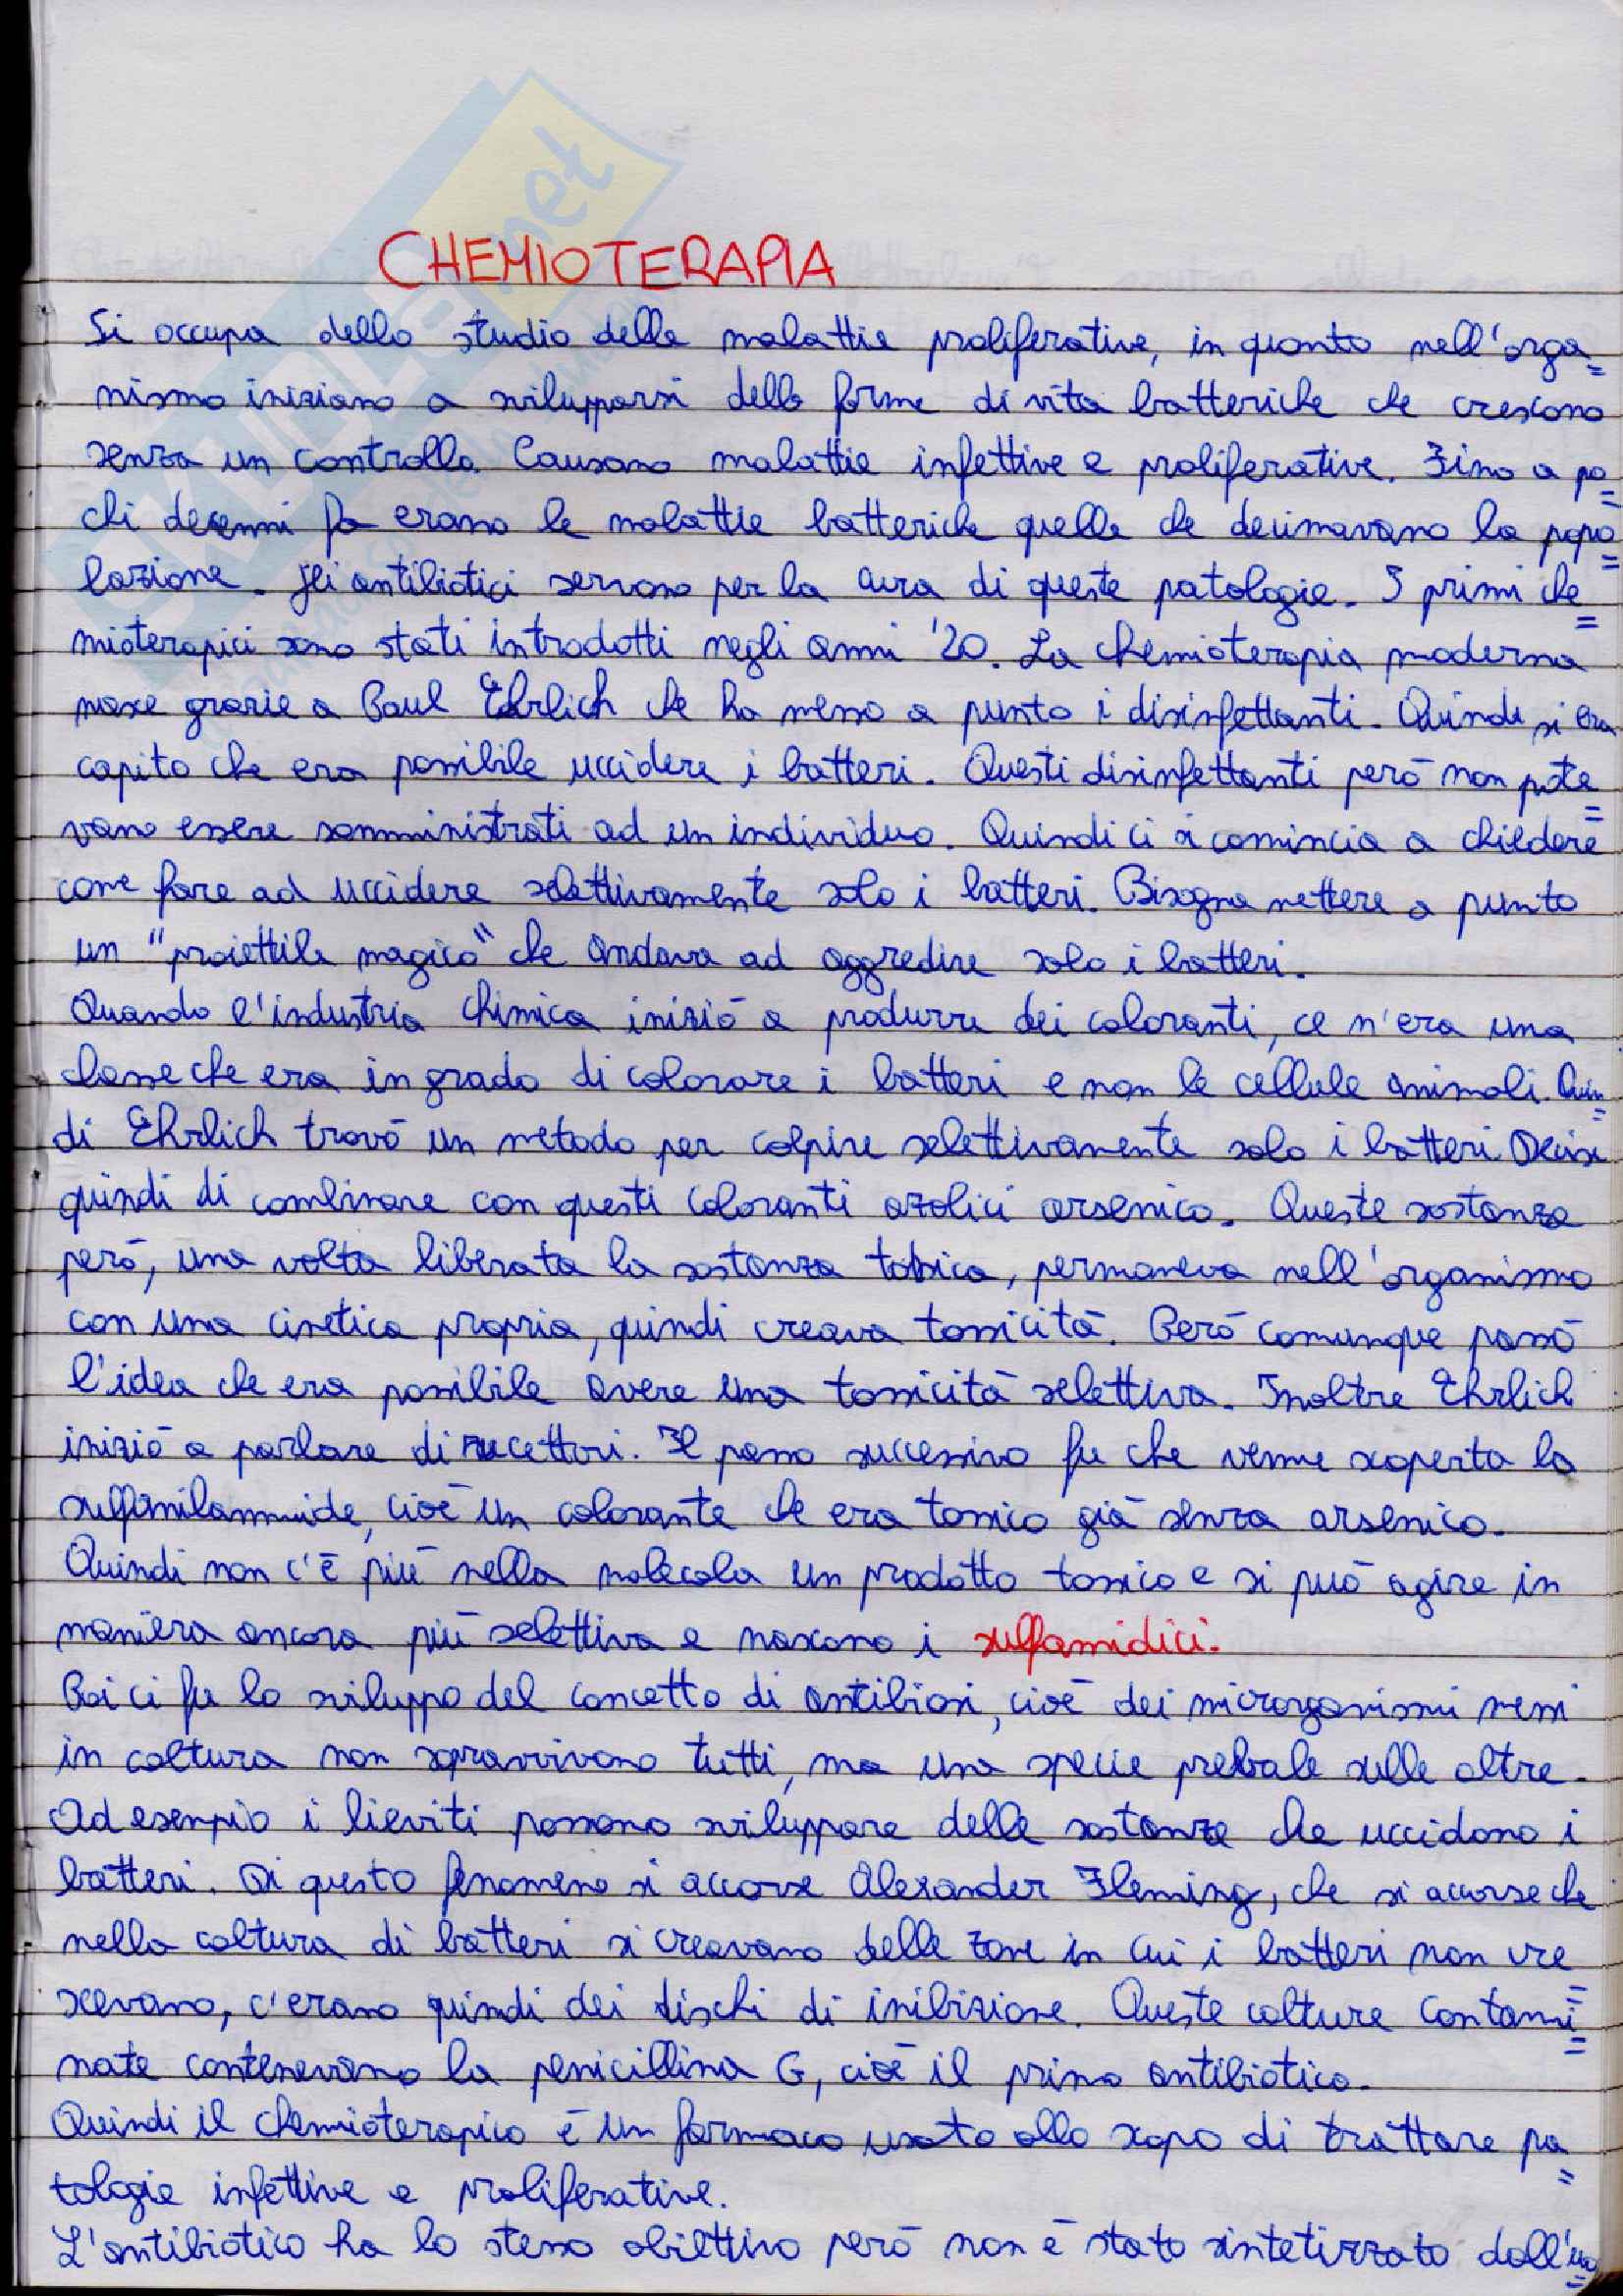 CHEMIOTERAPIA
Si occupa dello studio delle malattie proliferative, in quanto nell'orga=
nismo iniziano a svilupparsi delle forme di vita batteriche che crescono
senza un controllo. Causano malattie infettive e proliferative. Fino a po=
chi decenni fa erano le malattie batteriche quelle che decimavano la popo=
lazione. Gli antibiotici servono per la cura di queste patologie. I primi che=
mioterapici sono stati introdotti negli anni '20. La chemioterapia moderna
nasce grazie a Paul Ehrlich che ha messo a punto i disinfettanti. Quindi si era
capito che era possibile uccidere i batteri. Questi disinfettanti però non pote=
vano essere somministrati ad un individuo. Quindi ci si comincia a chiedere
come fare ad uccidere selettivamente solo i batteri. Bisogna mettere a punto
un "proiettile magico" che andava ad aggredire solo i batteri.
Quando l'industria chimica iniziò a produrre dei coloranti, ce n'era una
classe che era in grado di colorare i batteri e non le cellule animali. Quin=
di Ehrlich trovò un metodo per colpire selettivamente solo i batteri. Decise
quindi di combinare con questi coloranti azolici arsenico. Queste sostanze
però, una volta liberata la sostanza tossica, permaneva nell'organismo
con una cinetica propria, quindi creava tossicità. Però comunque passò
l'idea che era possibile avere una tossicità selettiva. Inoltre Ehrlich
iniziò a parlare di recettori. Il passo successivo fu che venne scoperta la
sulfanilammide, cioè un colorante che era tossico già senza arsenico.
Quindi non c'è più nella molecola un prodotto tossico e si può agire in
maniera ancora più selettiva e nascono i sulfamidici.
Poi ci fu lo sviluppo del concetto di antibiosi, cioè dei microrganismi messi
in coltura non sopravvivono tutti, ma una specie prevale sulle altre.
Ad esempio i lieviti possono sviluppare delle sostanze che uccidono i
batteri. Di questo fenomeno si accorse Alexander Fleming, che si accorse che
nella coltura di batteri si creavano delle zone in cui i batteri non cre
scevano, c'erano quindi dei dischi di inibizione. Queste colture contami=
nate contenevano la penicillina G, cioè il primo antibiotico.
Quindi il chemioterapico è un farmaco usato allo scopo di trattare pa=
tologie infettive e proliferative.
L'antibiotico ha lo stesso obiettivo però non è stato sintetizzato dall'uo=